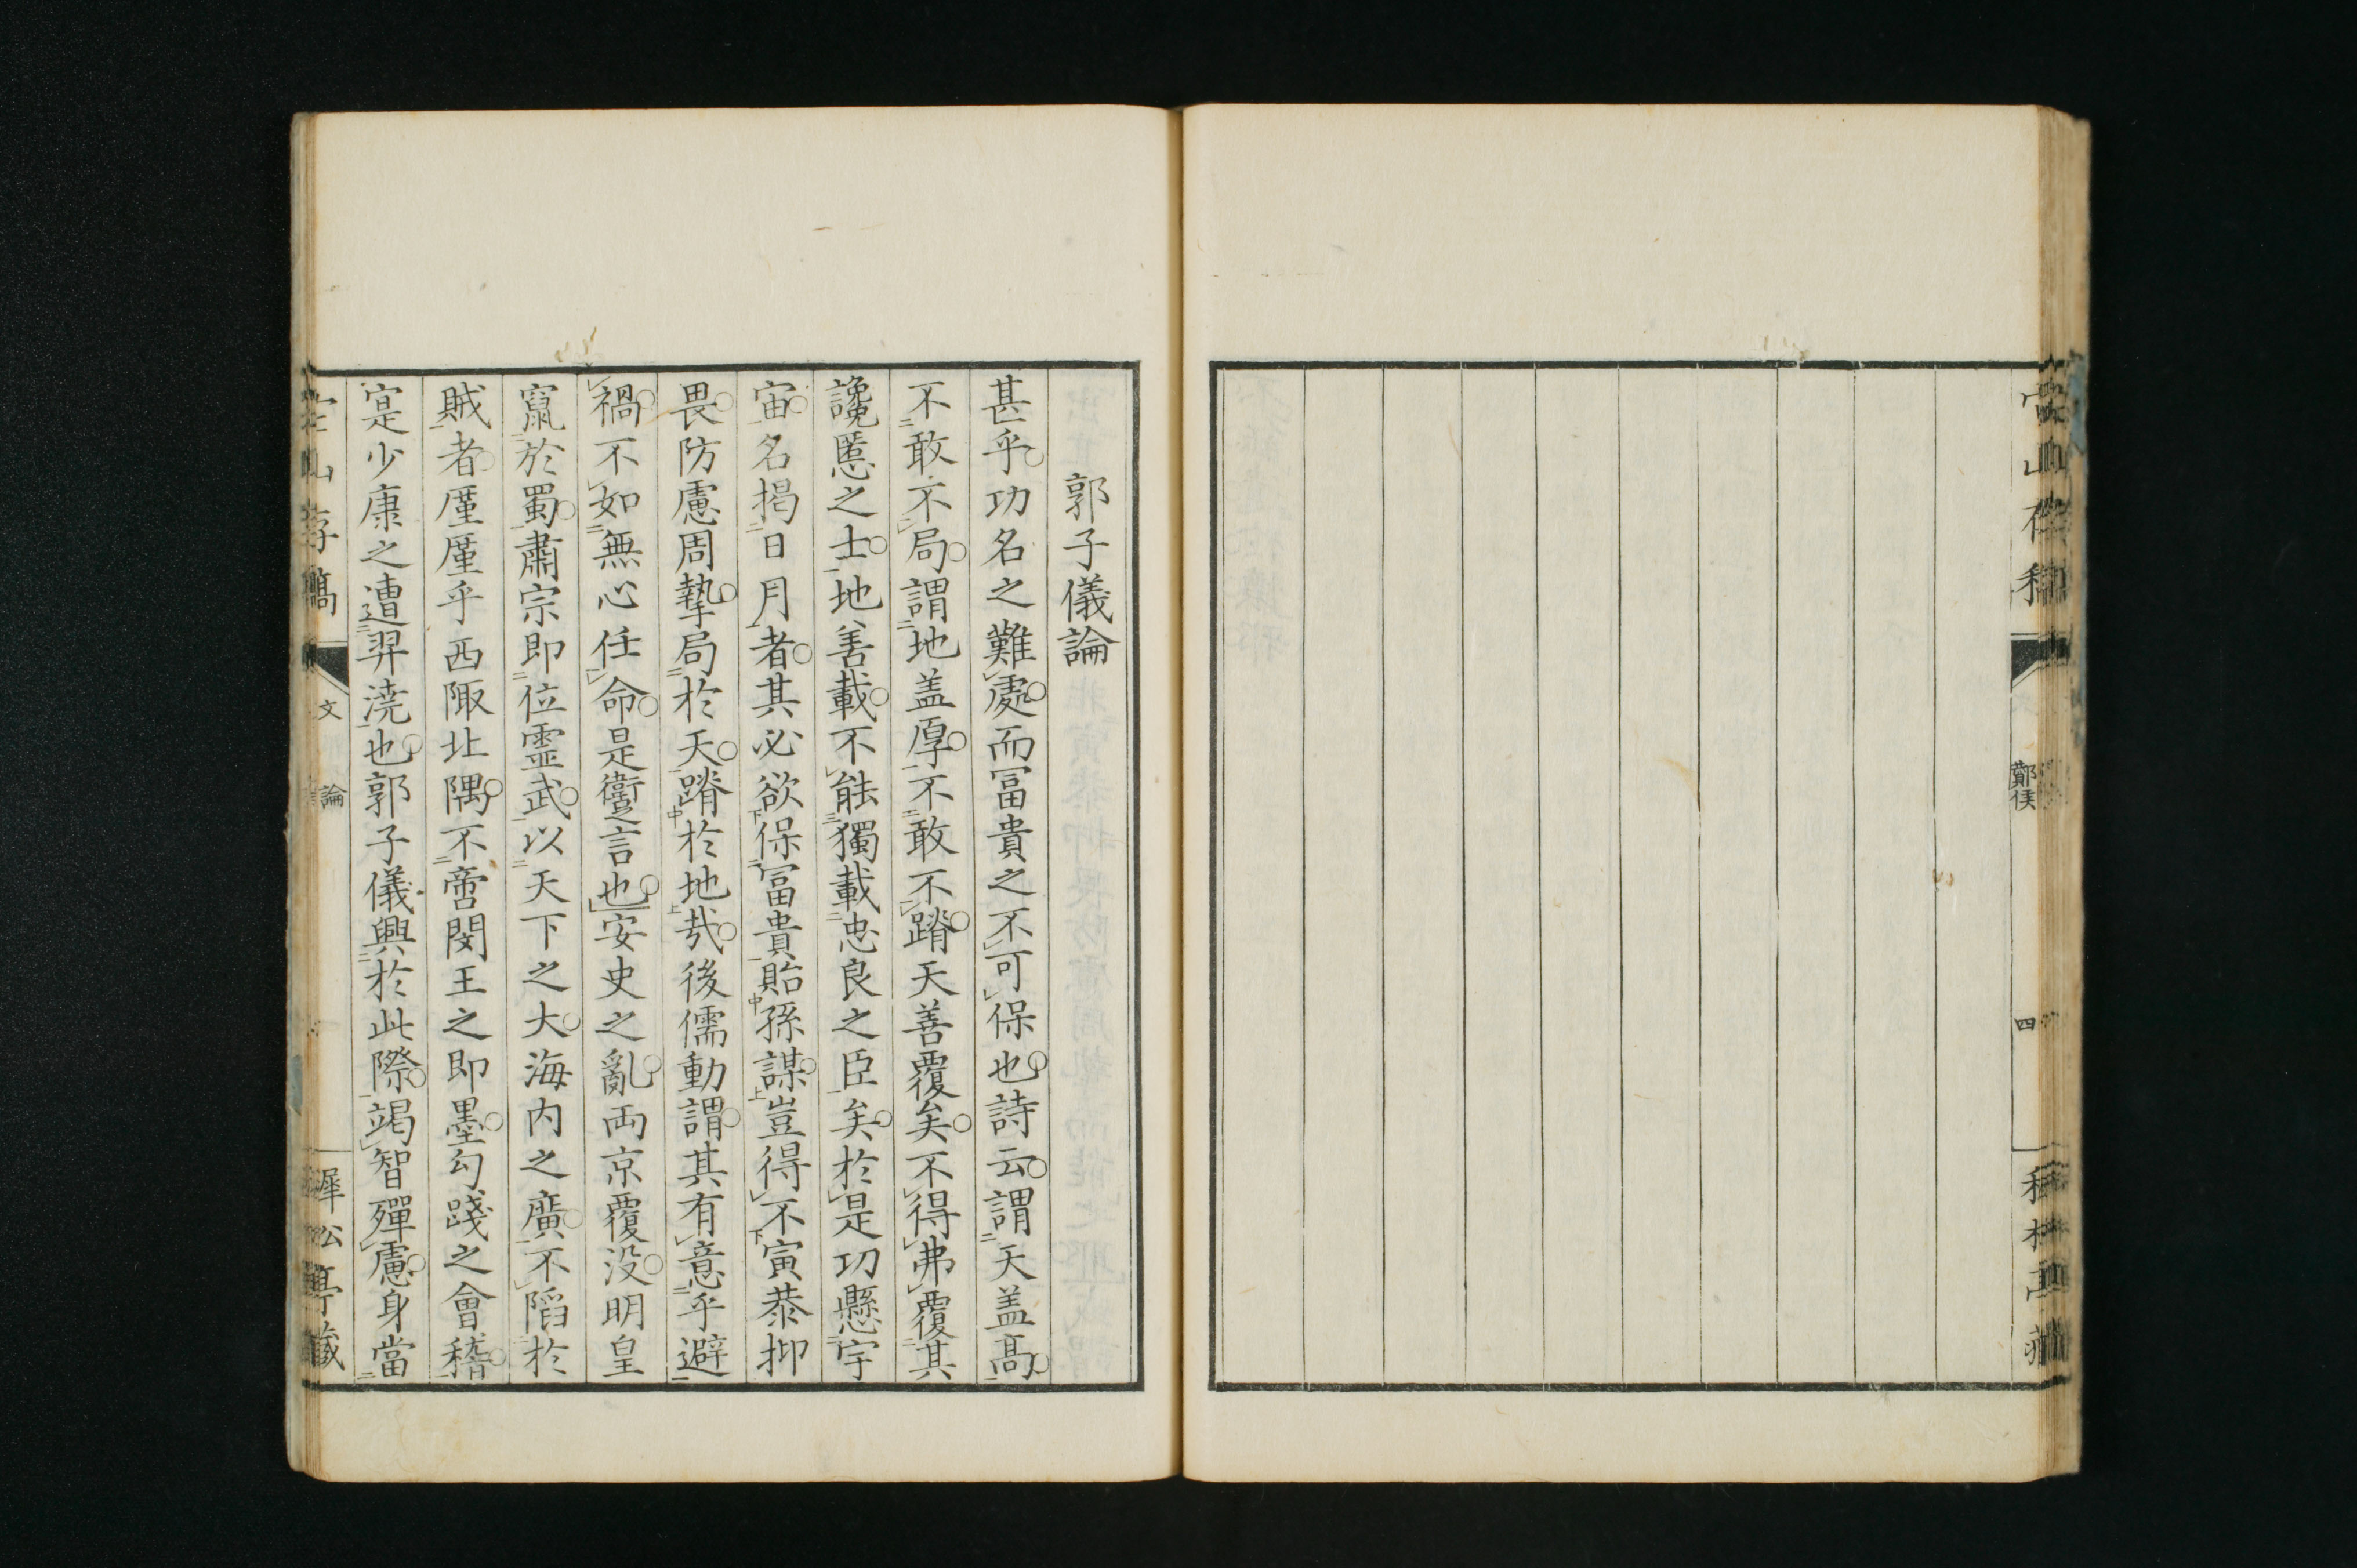 鄭侯
四
郭子儀論
甚乎功名之難處而冨貴之不可保也詩云謂天盖髙
不敢不局謂地盖厚不敢不蹐天善覆矣不得弗覆其
讒慝之士地善載不能獨載忠良之臣矣於是功懸宇
宙名揭日月者其必欲保冨貴貽孫謀豈得不寅恭抑
畏防慮周摯局於天蹐於地哉後儒動謂其有意乎避
禍不如無心任命是躗言也安史之亂両京覆没明皇
竄於蜀肅宗即位霊武以天下之大海内之廣不陷於
賊者厪厪乎西陬北隅不啻閔王之即墨勾踐之會稽
寔少康之遭羿澆也郭子儀興於此際竭智殫慮身當
山存藁
文
論
遲松亭藏